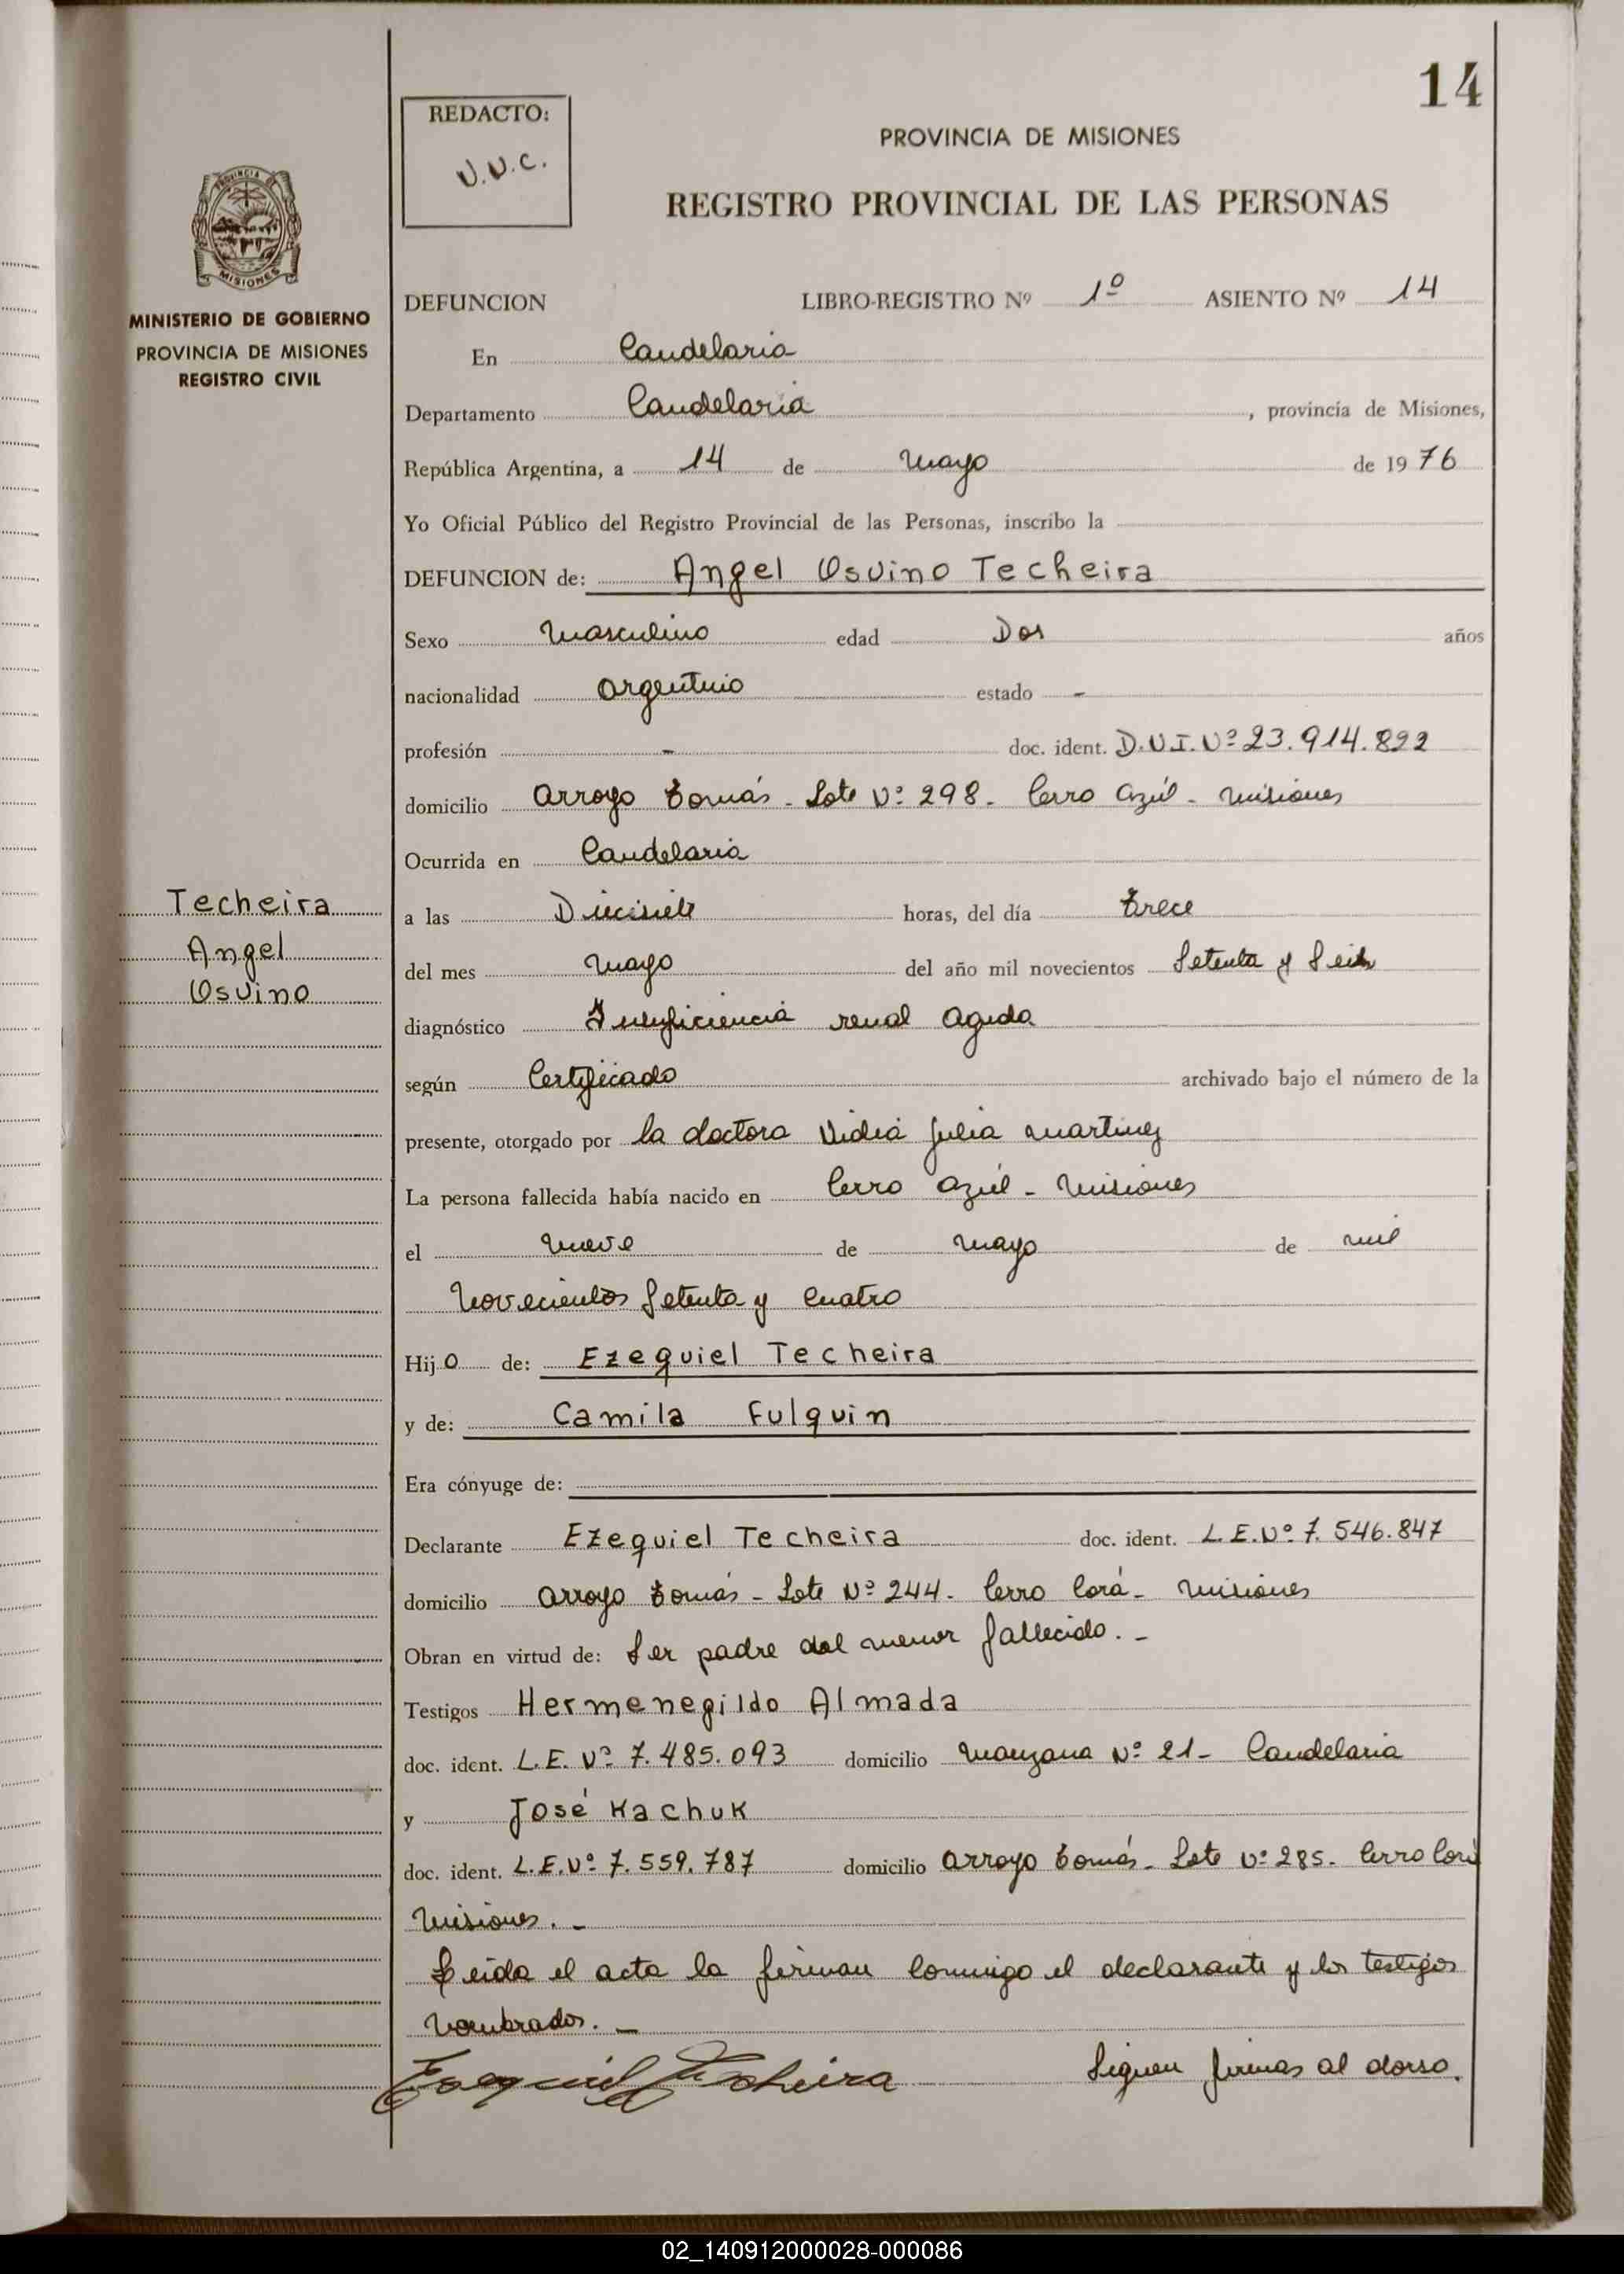 14
REDACTO:
PROVINCIA DE MISIONES
REGISTRO PROVINCIAL DE LAS PERSONAS
PROVINCIA DE
MISIONES
MINISTERIO DE GOBIERNO
PROVINCIA DE MISIONES
REGISTRO CIVIL
DEFUNCION LIBRO-REGISTRO Nº 1º ASIENTO Nº 14
En Candelaria
Departamento Candelaria, provincia de Misiones,
República Argentina, a 14 de Mayo de 1976
Yo Oficial Público del Registro Provincial de las Personas, inscribo la
DEFUNCION de: Angel Osvino Techeira
Sexo Masculino edad Dos años
nacionalidad Argentino estado -
profesión - doc. ident. D.N.I. Nº 23.914.892
domicilio Arroyo Tomás - Lote Nº 298 - Cerro Azúl - Misiones
Ocurrida en Candelaria
Techeira
Angel
Osvino
a las Diecisiete horas, del día Trece
del mes Mayo del año mil novecientos Setenta y Seis
diagnóstico Insuficiencia renal aguda
según Certificado archivado bajo el número de la
presente, otorgado por la doctora Nidia Julia Martinez
La persona fallecida había nacido en Cerro Azúl - Misiones
el nueve de Mayo de mil
Novecientos Setenta y Cuatro
Hijo de: Ezequiel Techeira
y de: Camila Fulquin
Era cónyuge de:
Declarante Ezequiel Techeira doc. ident. L.E. Nº 7.546.847
domicilio Arroyo Tomás - Lote Nº 244 - Cerro Corá - Misiones
Obran en virtud de: Ser padre del menor fallecido. -
Testigos Hermenegildo Almada
doc. ident. L.E. Nº 7.485.093 domicilio Manzana Nº 21 - Candelaria
y José Kachuk
doc. ident. L.E. Nº 7.559.787 domicilio Arroyo Tomás - Lote Nº 285 - Cerro Corá
Misiones. -
Leida el acta la firman conmigo el declarante y los testigos
nombrados. -
Ezequiel Techeira Siguen firmas al dorso.
02_140912000028-000086